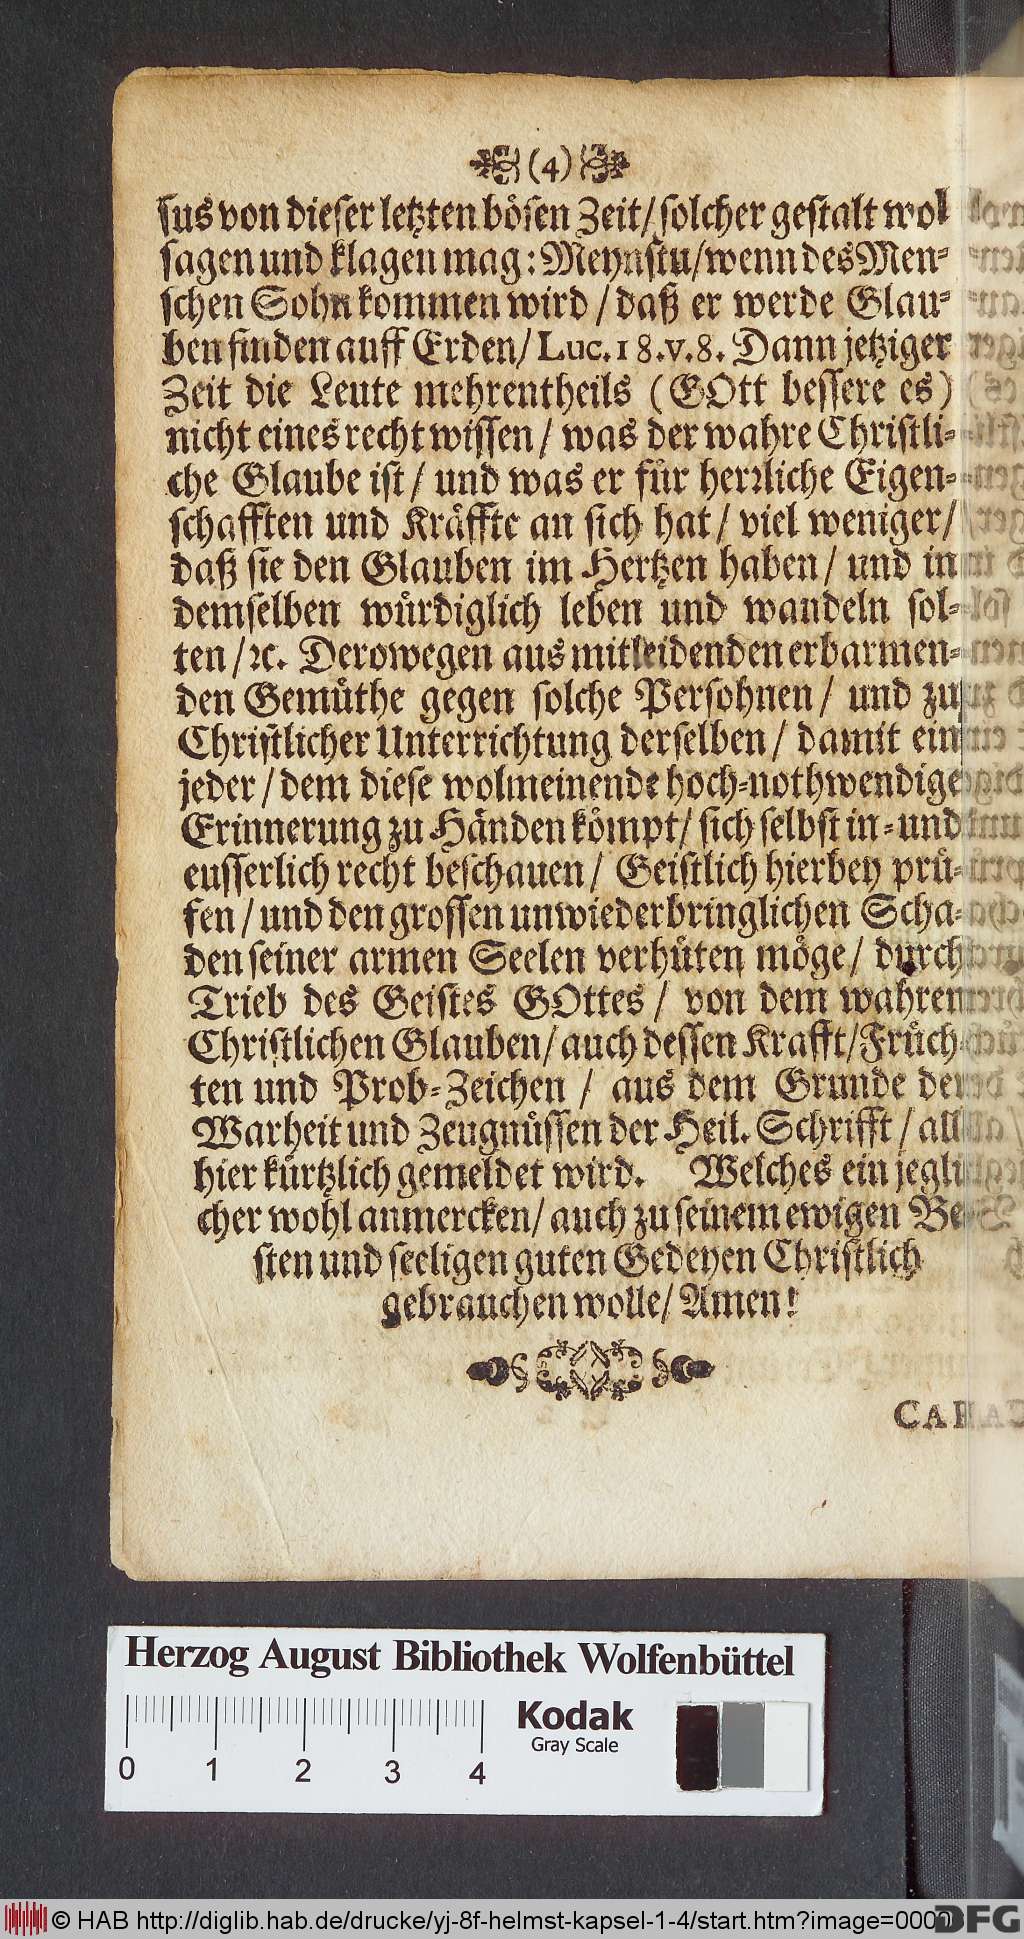 (4)
sus von dieser letzten boͤsen Zeit/ solcher gestalt wol
sagen und klagen mag: Meynstu/ wenn des Men-
schen Sohn kommen wird / daß er werde Glau-
ben finden auff Erden/ Luc. 18. v. 8. Dann jetziger
Zeit die Leute mehrentheils (GOtt bessere es)
nicht eines recht wissen / was der wahre Christli-
che Glaube ist / und was er fuͤr herꝛliche Eigen-
schafften und Kraͤffte an sich hat / viel weniger /
daß sie den Glauben im Hertzen haben / und in
demselben wuͤrdiglich leben und wandeln sol-
ten / ꝛc. Derowegen aus mitleidenden erbarmen-
den Gemuͤthe gegen solche Persohnen / und zu
Christlicher Unterrichtung derselben / damit ein
jeder / dem diese wolmeinende hoch-nothwendige
Erinnerung zu Haͤnden koͤmpt / sich selbst in- und
eusserlich recht beschauen / Geistlich hierbey pruͤ-
fen / und den grossen unwiederbringlichen Scha-
den seiner armen Seelen verhuͤten moͤge / durch
Trieb des Geistes GOttes / von dem wahren
Christlichen Glauben / auch dessen Krafft / Fruͤch-
ten und Prob-Zeichen / aus dem Grunde der
Warheit und Zeugnuͤssen der Heil. Schrifft / all-
hier kuͤrtzlich gemeldet wird. Welches ein jegli-
cher wohl anmercken / auch zu seinem ewigen Be-
sten und seeligen guten Gedeyen Christlich
gebrauchen wolle / Amen!
Herzog August Bibliothek Wolfenbüttel
Kodak
Gray Scale
0 1 2 3 4
© HAB http://diglib.hab.de/drucke/yj-8f-helmst-kapsel-1-4/start.htm?image=0000
DFG